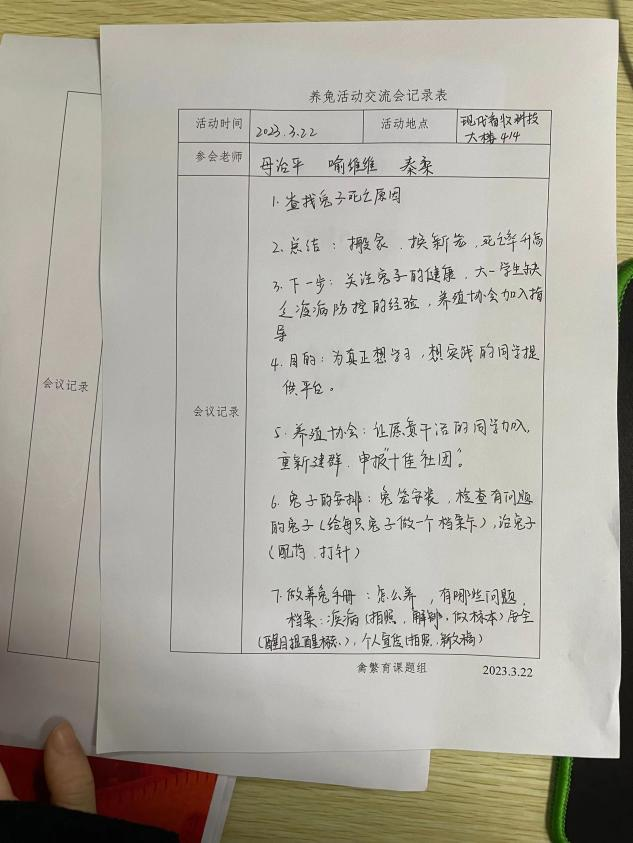 养兔活动交流会记录表
活动时间 2023.3.22 活动地点 现代畜牧科技
大楼414
参会老师 母治平 喻维维 秦柔
会议记录
1.查找兔子死亡原因
2.总结：搬家、换新笼，死亡率升高
3.下一步：关注兔子的健康，大一学生缺
乏疫病防控的经验，养殖协会加入指
导
4.目的：为真正想学习，想实践的同学提
供平台。
会议记录
5.养殖协会：让愿意干活的同学加入，
重新建群，申报"十佳社团"。
6.兔子的安排：兔笼安装，检查有问题
的兔子(给每只兔子做一个档案卡),治兔子
(配药、打针)
7.做养兔手册：怎么养，有哪些问题，
档案：疾病(拍照，解剖，做标本)安全
(醒目提醒标示),个人宣传(拍照，新文稿)
禽繁育课题组 2023.3.22